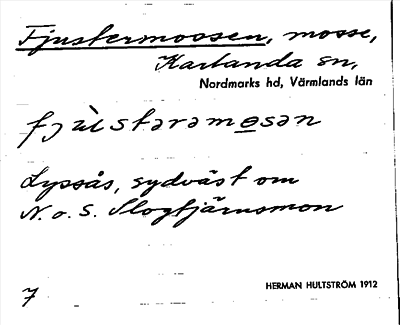 Fjustermossen, mosse,
Karlanda sn,
Nordmarks hd, Värmlands län
fjùstəramosən
Lyssås, sydväst om
N. o. S. Slogtjärnsmon
HERMAN HULTSTRÖM 1912
7